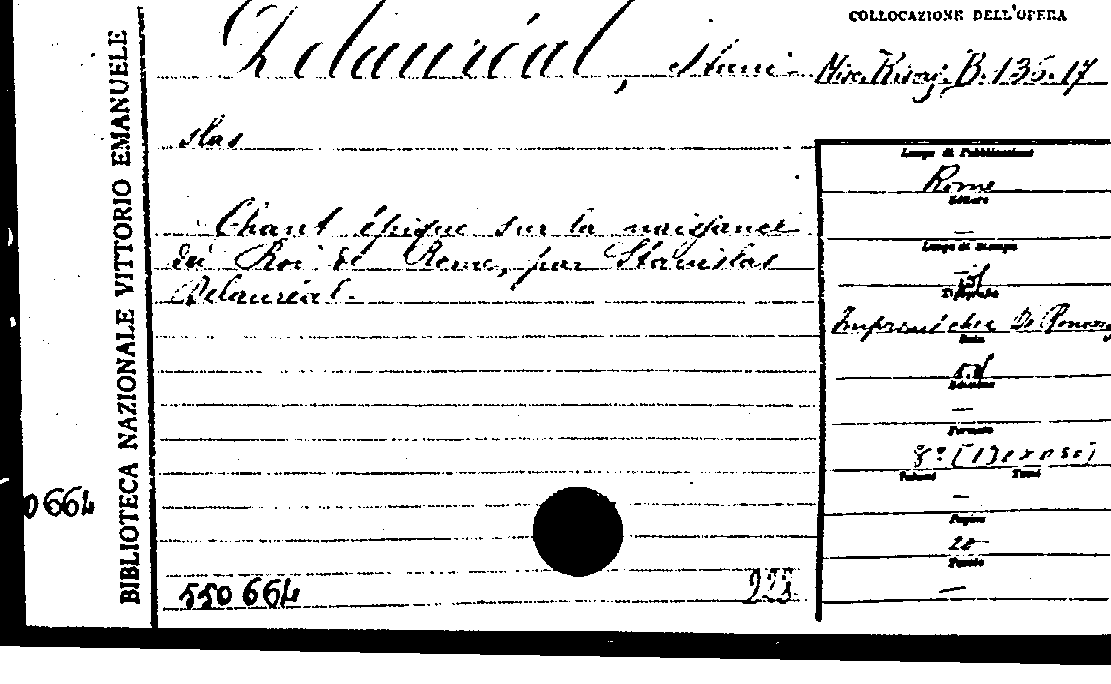 COLLOCAZIONE DELL'OPERA
Delauréal, Stani- Misc. Risorg. B. 135. 17
slas
Luogo di Pubblicazione
Rome
Editore
—
Chant épique sur la naissance
du Roi de Rome, par Stanislas
Delauréal.
Luogo di stampa
Tipografia
Imprimé chez De Romanis
Data
s.d.
Edizione
—
Formato
8°
Volumi Tomi
—
Pagine
20
Tavole
—
550664 223
0664
BIBLIOTECA NAZIONALE VITTORIO EMANUELE